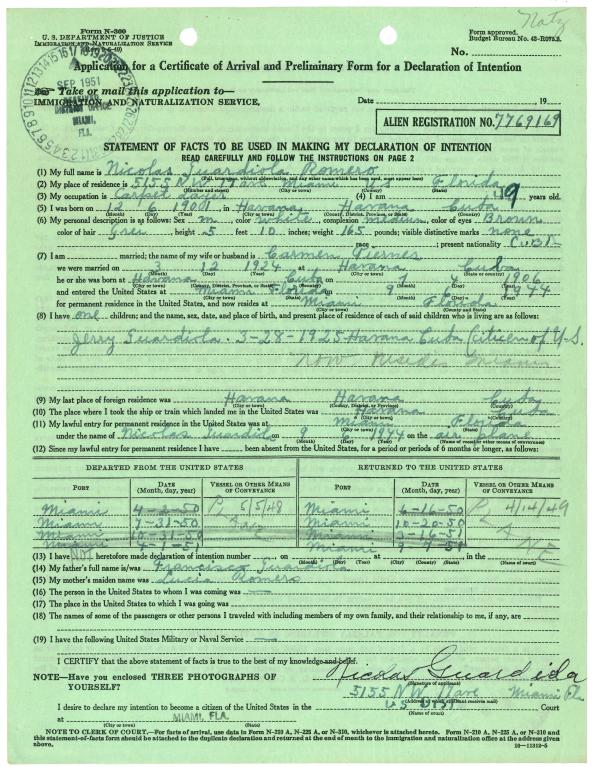 Natz
Form N-300
U. S. DEPARTMENT OF JUSTICE
IMMIGRATION AND NATURALIZATION SERVICE
Form approved.
Budget Bureau No. 43-R075.2.
No.
Application for a Certificate of Arrival and Preliminary Form for a Declaration of Intention
SEP 1951
MIAMI, FLA.
Take or mail this application to—
IMMIGRATION AND NATURALIZATION SERVICE,
Date , 19
ALIEN REGISTRATION NO. 7769169
STATEMENT OF FACTS TO BE USED IN MAKING MY DECLARATION OF INTENTION
READ CAREFULLY AND FOLLOW THE INSTRUCTIONS ON PAGE 2
(1) My full name is Nicolas Guardiola Romero
(Full, true name, without abbreviation, and any other name which has been used, must appear here)
(2) My place of residence is 5155 N.W. Miami Florida
(Number and street) (City or town) (County) (State)
(3) My occupation is Carpet Layer (4) I am 49 years old.
(5) I was born on 12 6 1901 in Havana Havana Cuba
(Month) (Day) (Year) (City or town) (County, District, Province, or State) (Country)
(6) My personal description is as follows: Sex m color white, complexion medium, color of eyes Brown
color of hair Grey, height 5 feet 10 inches; weight 165 pounds; visible distinctive marks none
race ; present nationality Cuba
(7) I am married; the name of my wife or husband is Carmen Piernes
we were married on 3 12 1924 at Havana Cuba
(Month) (Day) (Year) (City or town) (State or country)
he or she was born at Havana Cuba on 7 4 1906
(City or town) (County, District, Province, or State) (Country) (Month) (Day) (Year)
and entered the United States at Miami Florida on 9 6 1944
(City or town) (State) (Month) (Day) (Year)
for permanent residence in the United States, and now resides at Miami Florida
(City or town) (County and State)
(8) I have one children; and the name, sex, date, and place of birth, and present place of residence of each of said children who is living are as follows:
Jerry Guardiola. 3-28-1925 Havana Cuba (Citizen of U.S.
now resides Miami
(9) My last place of foreign residence was Havana Havana Cuba
(City or town) (County, District, or Province) (Country)
(10) The place where I took the ship or train which landed me in the United States was Havana Cuba
(City or town) (Country)
(11) My lawful entry for permanent residence in the United States was at Miami Florida
(City or town) (State)
under the name of Nicolas Guardiola on 9 6 1944 on the air plane
(Month) (Day) (Year) (Name of vessel or other means of conveyance)
(12) Since my lawful entry for permanent residence I have been absent from the United States, for a period or periods of 6 months or longer, as follows:
DEPARTED FROM THE UNITED STATES RETURNED TO THE UNITED STATES
PORT DATE (Month, day, year) VESSEL OR OTHER MEANS OF CONVEYANCE PORT DATE (Month, day, year) VESSEL OR OTHER MEANS OF CONVEYANCE
Miami 4-2-50 5/5/48 Miami 6-16-50 4/14/49
Miami 7-31-50 Miami 10-20-50
Miami 10-31-50 Miami 3-16-51
Miami Miami
(13) I have NOT heretofore made declaration of intention number , on at , in the
(Month) (Day) (Year) (City) (County) (State) (Name of court)
(14) My father's full name is/was Francisco Guardiola
(15) My mother's maiden name was Lucia Romero
(16) The person in the United States to whom I was coming was —
(17) The place in the United States to which I was going was
(18) The names of some of the passengers or other persons I traveled with including members of my own family, and their relationship to me, if any, are
(19) I have the following United States Military or Naval Service —
I CERTIFY that the above statement of facts is true to the best of my knowledge and belief.
NOTE—Have you enclosed THREE PHOTOGRAPHS OF YOURSELF?
Nicolas Guardiola
(Signature of applicant)
5155 NW Miami Fla
(Address at which applicant receives mail)
I desire to declare my intention to become a citizen of the United States in the US Court
(Name of court)
at MIAMI, FLA.
(City or town) (State)
NOTE TO CLERK OF COURT.—For facts of arrival, use data in Form N-210 A, N-225 A, or N-310, whichever is attached hereto. Form N-210 A, N-225 A, or N-310 and
this statement-of-facts form should be attached to the duplicate declaration and returned at the end of month to the immigration and naturalization office at the address given
above.
16—11312-5